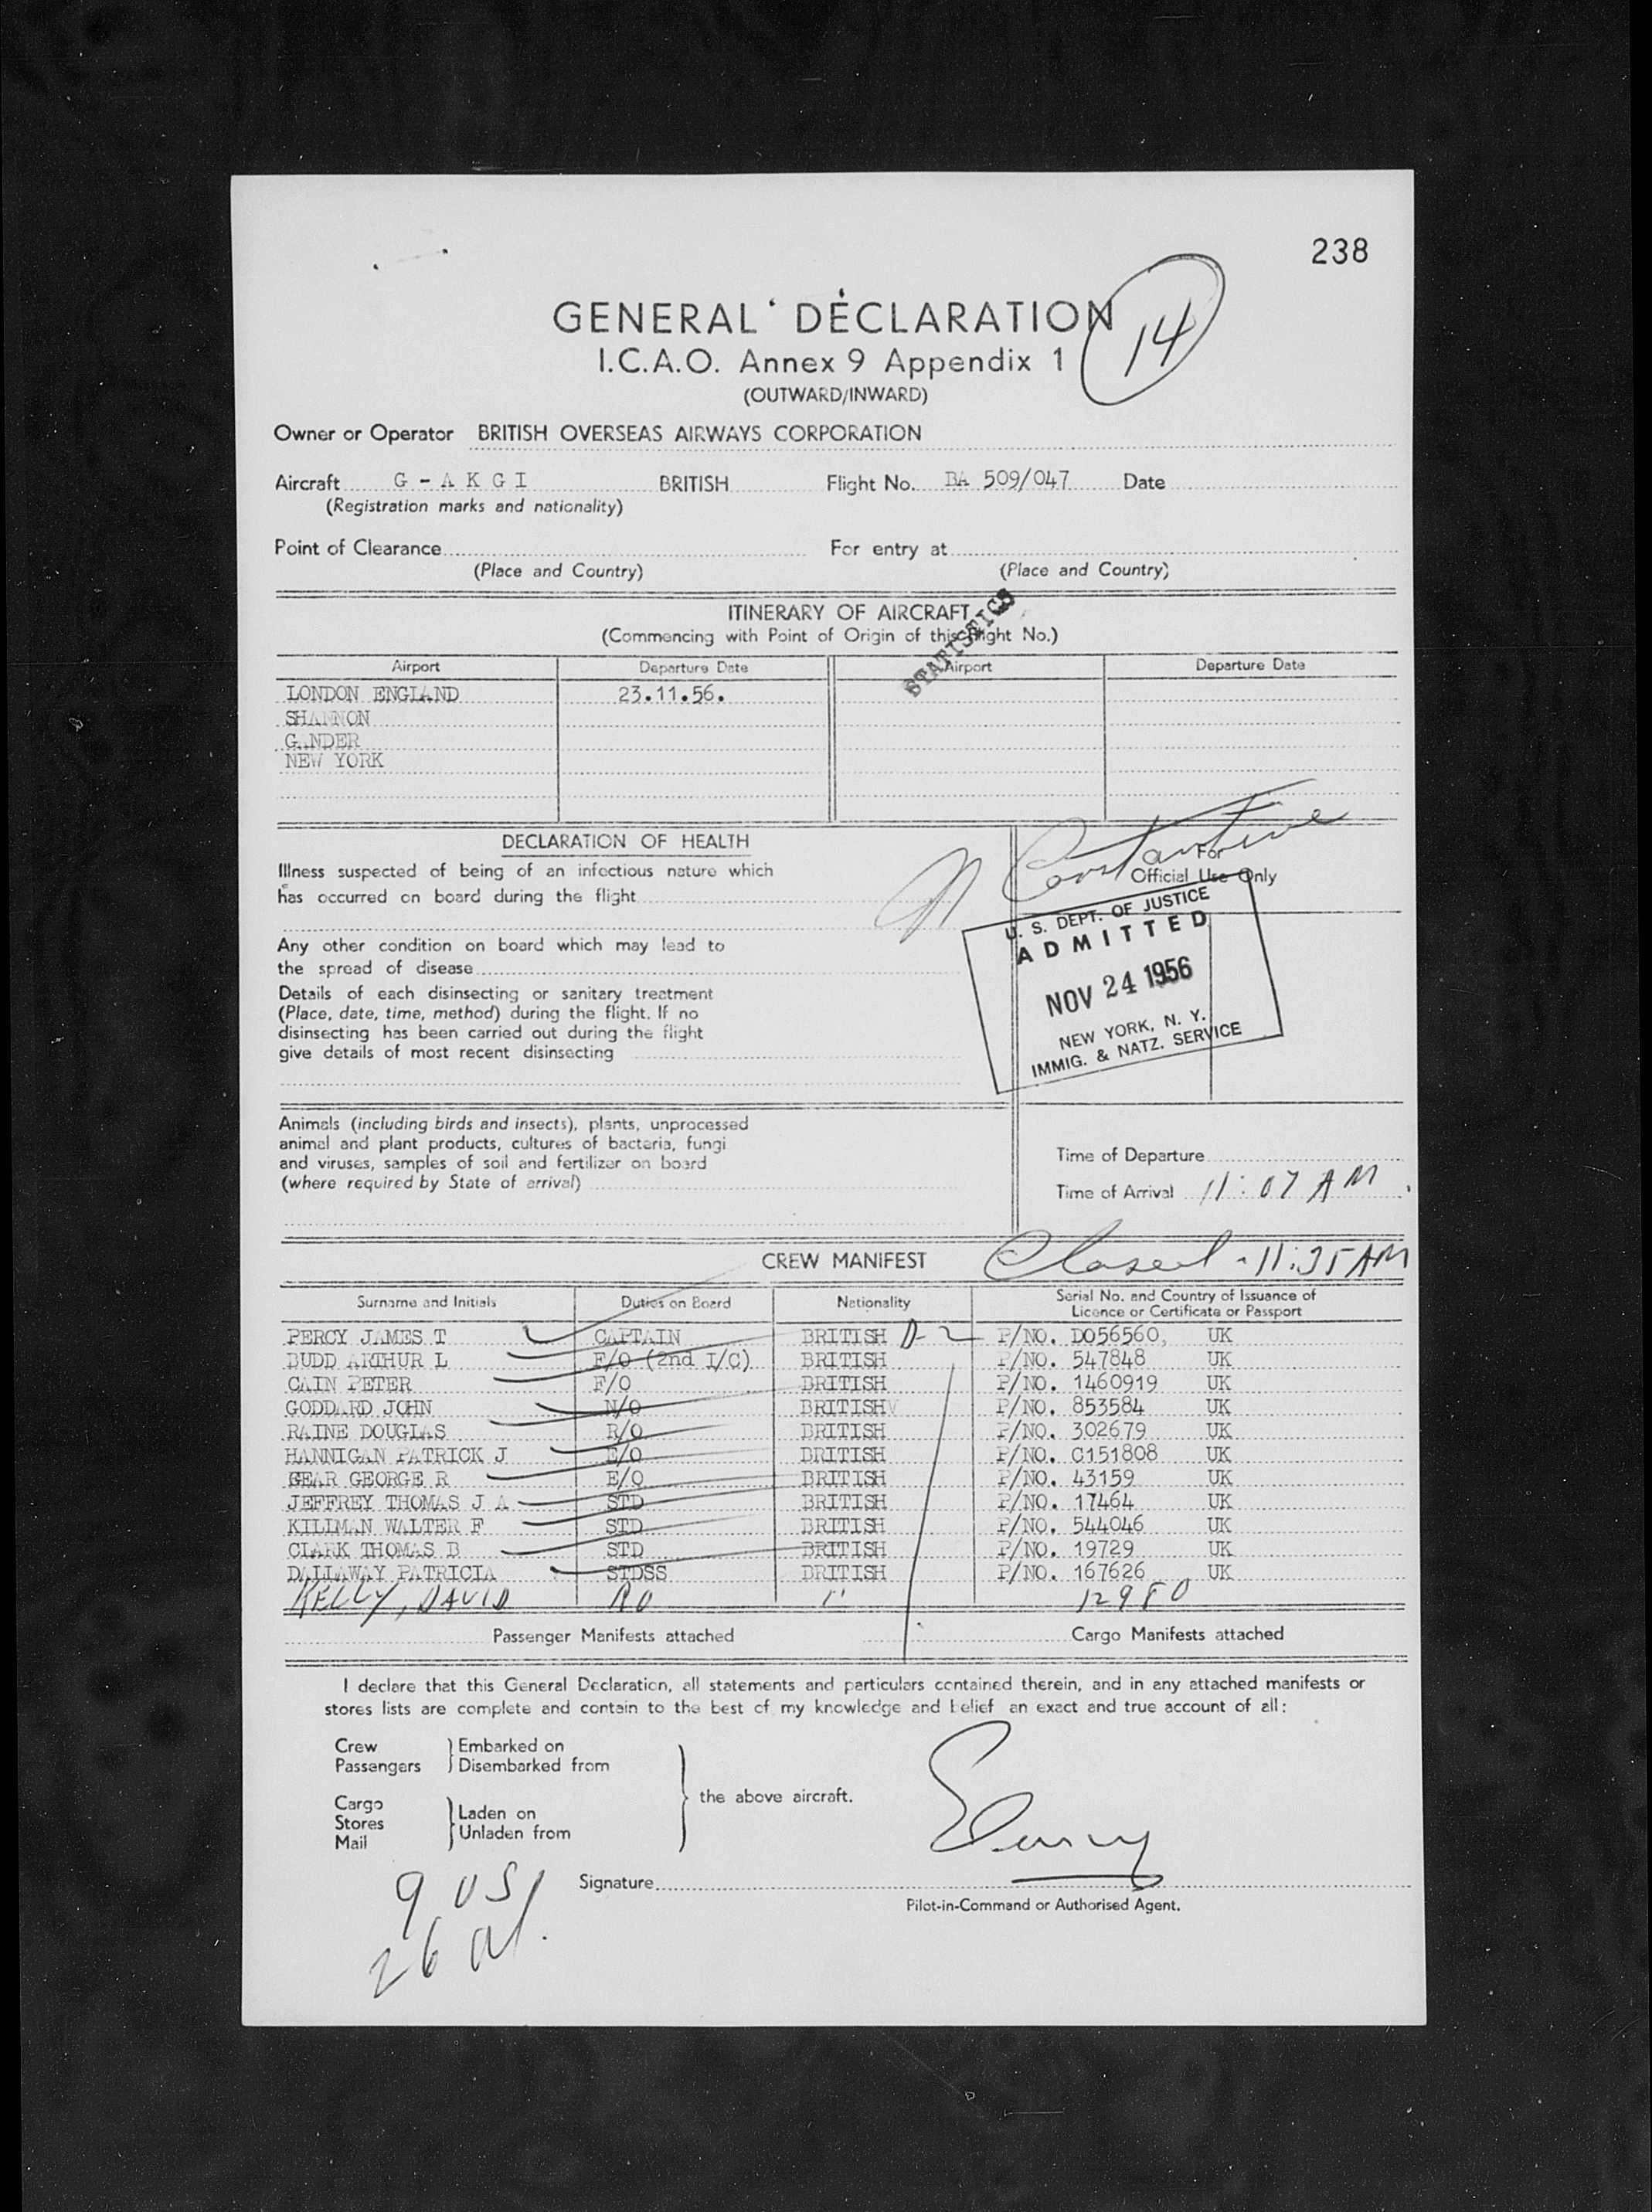 238
GENERAL DECLARATION
14
I.C.A.O. Annex 9 Appendix 1
(OUTWARD/INWARD)
Owner or Operator BRITISH OVERSEAS AIRWAYS CORPORATION
Aircraft G - A K G I BRITISH Flight No. BA 509/047 Date
(Registration marks and nationality)
Point of Clearance For entry at
(Place and Country) (Place and Country)
ITINERARY OF AIRCRAFT
(Commencing with Point of Origin of this Flight No.)
STATISTICS
Airport Departure Date Airport Departure Date
LONDON ENGLAND 23.11.56.
SHANNON
GANDER
NEW YORK
DECLARATION OF HEALTH
Illness suspected of being of an infectious nature which
has occurred on board during the flight
Any other condition on board which may lead to
the spread of disease
Details of each disinsecting or sanitary treatment
(Place, date, time, method) during the flight. If no
disinsecting has been carried out during the flight
give details of most recent disinsecting
N Constantine
For
Official Use Only
U. S. DEPT. OF JUSTICE
ADMITTED
NOV 24 1956
NEW YORK, N. Y.
IMMIG. & NATZ. SERVICE
Animals (including birds and insects), plants, unprocessed
animal and plant products, cultures of bacteria, fungi
and viruses, samples of soil and fertilizer on board
(where required by State of arrival)
Time of Departure
Time of Arrival 11:07 AM
CREW MANIFEST Closed - 11:35 AM
Surname and Initials Duties on Board Nationality Serial No. and Country of Issuance of
Licence or Certificate or Passport
PERCY JAMES T CAPTAIN BRITISH D-2 P/NO. D056560, UK
BUDD ARTHUR L F/O (2nd I/C) BRITISH P/NO. 547848 UK
CAIN PETER F/O BRITISH P/NO. 1460919 UK
GODDARD JOHN N/O BRITISH P/NO. 853584 UK
RAINE DOUGLAS R/O BRITISH P/NO. 302679 UK
HANNIGAN PATRICK J E/O BRITISH P/NO. C151808 UK
GEAR GEORGE R E/O BRITISH P/NO. 43159 UK
JEFFREY THOMAS J A STD BRITISH P/NO. 17464 UK
KILLMAN WALTER F STD BRITISH P/NO. 544046 UK
CLARK THOMAS B STD BRITISH P/NO. 19729 UK
DALLAWAY PATRICIA STDSS BRITISH P/NO. 167626 UK
KELLY, DAVID RO " 12980
Passenger Manifests attached Cargo Manifests attached
I declare that this General Declaration, all statements and particulars contained therein, and in any attached manifests or
stores lists are complete and contain to the best of my knowledge and belief an exact and true account of all:
Crew Embarked on
Passengers Disembarked from
the above aircraft.
Cargo
Stores Laden on
Mail Unladen from
Signature
Pilot-in-Command or Authorised Agent.
9 US
26 Al.